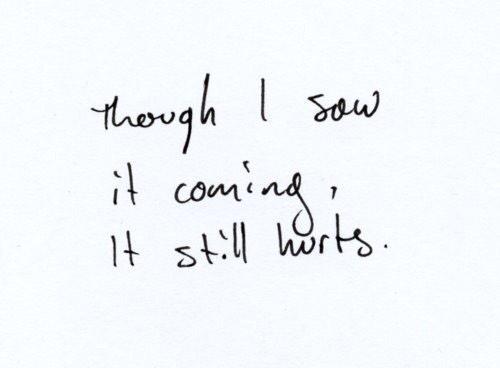 Though I saw
it coming,
It still hurts.